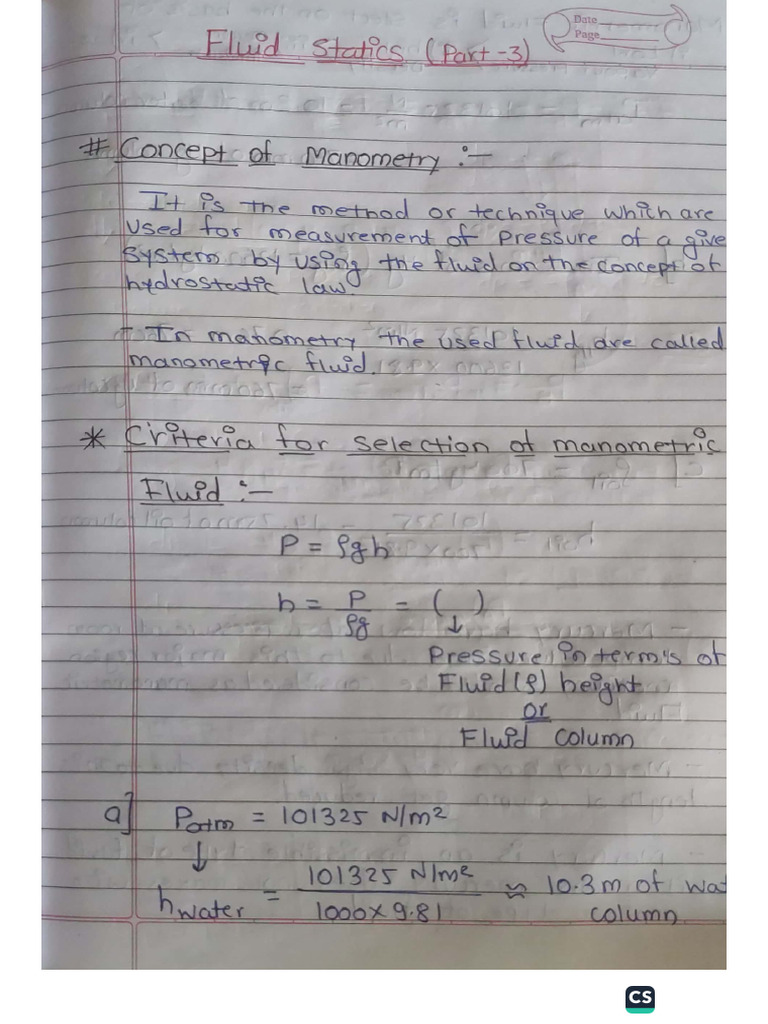 Date
Page
Fluid Statics (Part-3)
# Concept of Manometry :-
It is the method or technique which are
used for measurement of pressure of a give
system by using the fluid on the concept of
hydrostatic law.
- In manometry the used fluid are called
manometric fluid.
* Criteria for selection of manometric
Fluid :-
P = ρgh
h = P/ρg = ( )
↓
Pressure in term's of
Fluid (ρ) height
or
Fluid column
a] Patm = 101325 N/m²
↓
hwater = 101325 N/m² / 1000×9.81 ≈ 10.3 m of wat
column
CS